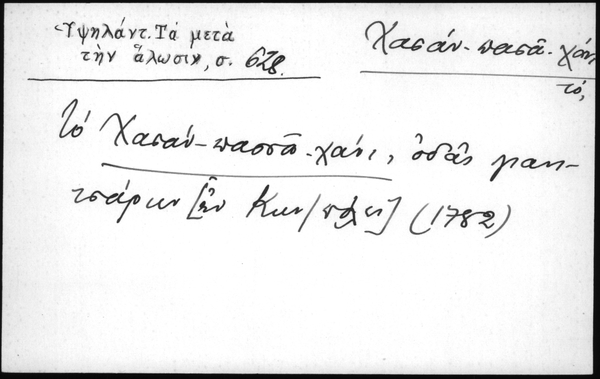 Ὑψηλάντ. Τὰ μετὰ
τὴν ἅλωσιν, σ. 628.
Χασάν-πασᾶ-χάνι
τό,
τό Χασάν-πασσᾶ-χάνι, ὀδᾶς
[ἐν Κων/πόλει] (1782)